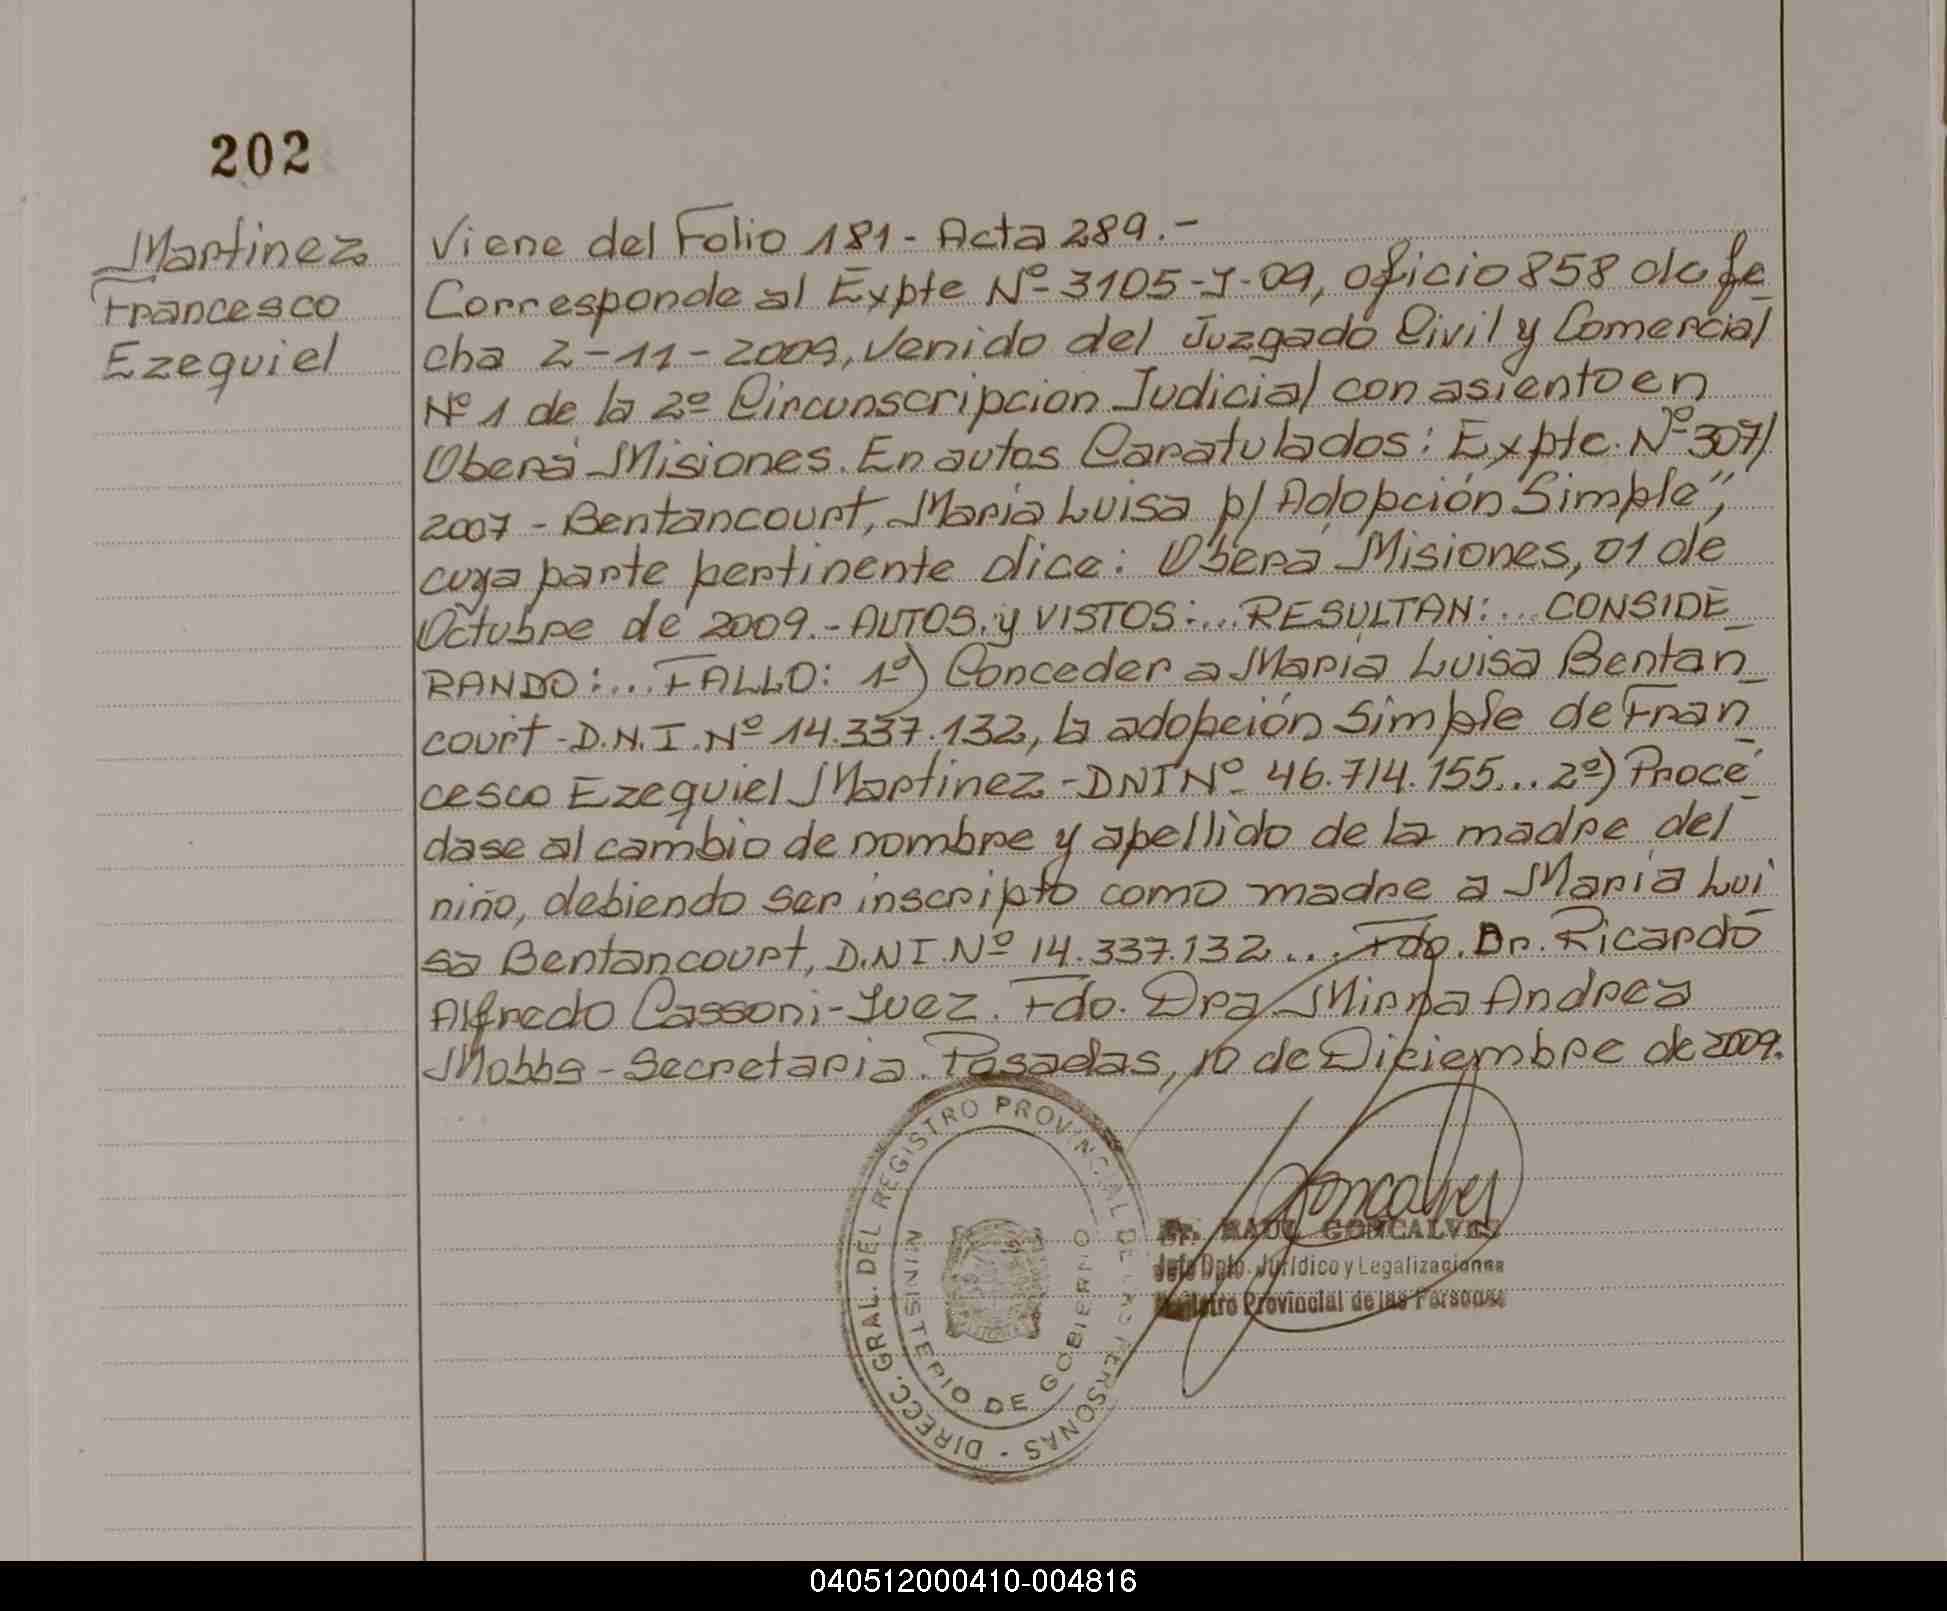 202
Martinez
Francesco
Ezequiel
Viene del Folio 181 - Acta 289.-
Corresponde al Expte Nº 3105-J-09, oficio 858 de fe
cha 2-11-2009, Venido del Juzgado Civil y Comercial
Nº 1 de la 2º Circunscripcion Judicial con asiento en
Oberá Misiones. En autos Caratulados: Expte. Nº 307/
2007 - Bentancourt, Maria Luisa p/ Adopción Simple",
cuya parte pertinente dice: Oberá Misiones, 01 de
Octubre de 2009.- AUTOS y VISTOS:... RESULTAN:... CONSIDE
RANDO:... FALLO: 1º) Conceder a Maria Luisa Bentan
court - D.N.I. Nº 14.337.132, la adopción Simple de Fran
cesco Ezequiel Martinez - DNI Nº 46.714.155... 2º) Proce
dase al cambio de nombre y apellido de la madre del
niño, debiendo ser inscripto como madre a Maria Lui
sa Bentancourt, D.NI. Nº 14.337.132... Fdo. Dr. Ricardo
Alfredo Cassoni - Juez. Fdo. Dra Mirna Andrea
Mobbs - Secretaria. Posadas, 10 de Diciembre de 2009.
DIRECC. GRAL. DEL REGISTRO PROVINCIAL DE LAS PERSONAS -
MINISTERIO DE GOBIERNO
Goncalves
Dr. RAUL GONCALVES
Jefe Dpto. Jurídico y Legalizaciones
Registro Provincial de las Personas
040512000410-004816